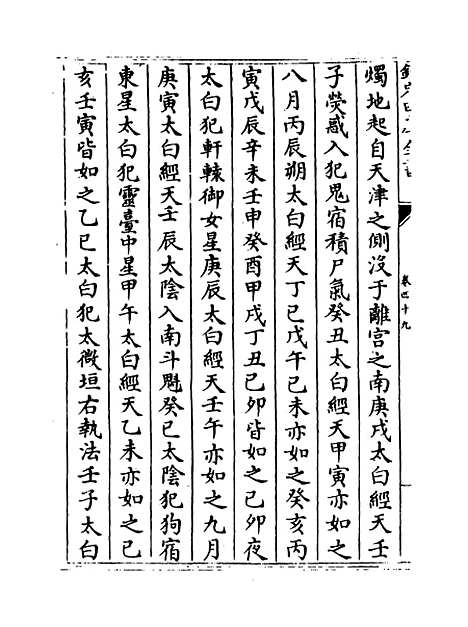 欽定四庫全書
卷四十九
燭地起自天津之側沒于離宮之南庚戌太白經天壬
子熒惑入犯鬼宿積尸氣癸丑太白經天甲寅亦如之
八月丙辰朔太白經天丁巳戊午己未亦如之癸亥丙
寅戊辰辛未壬申癸酉甲戌丁丑己卯皆如之己卯夜
太白犯軒轅御女星庚辰太白經天壬午亦如之九月
庚寅太白經天壬辰太陰入南斗魁癸巳太陰犯狗宿
東星太白犯靈臺中星甲午太白經天乙未亦如之己
亥壬寅皆如之乙巳太白犯太微垣右執法壬子太白